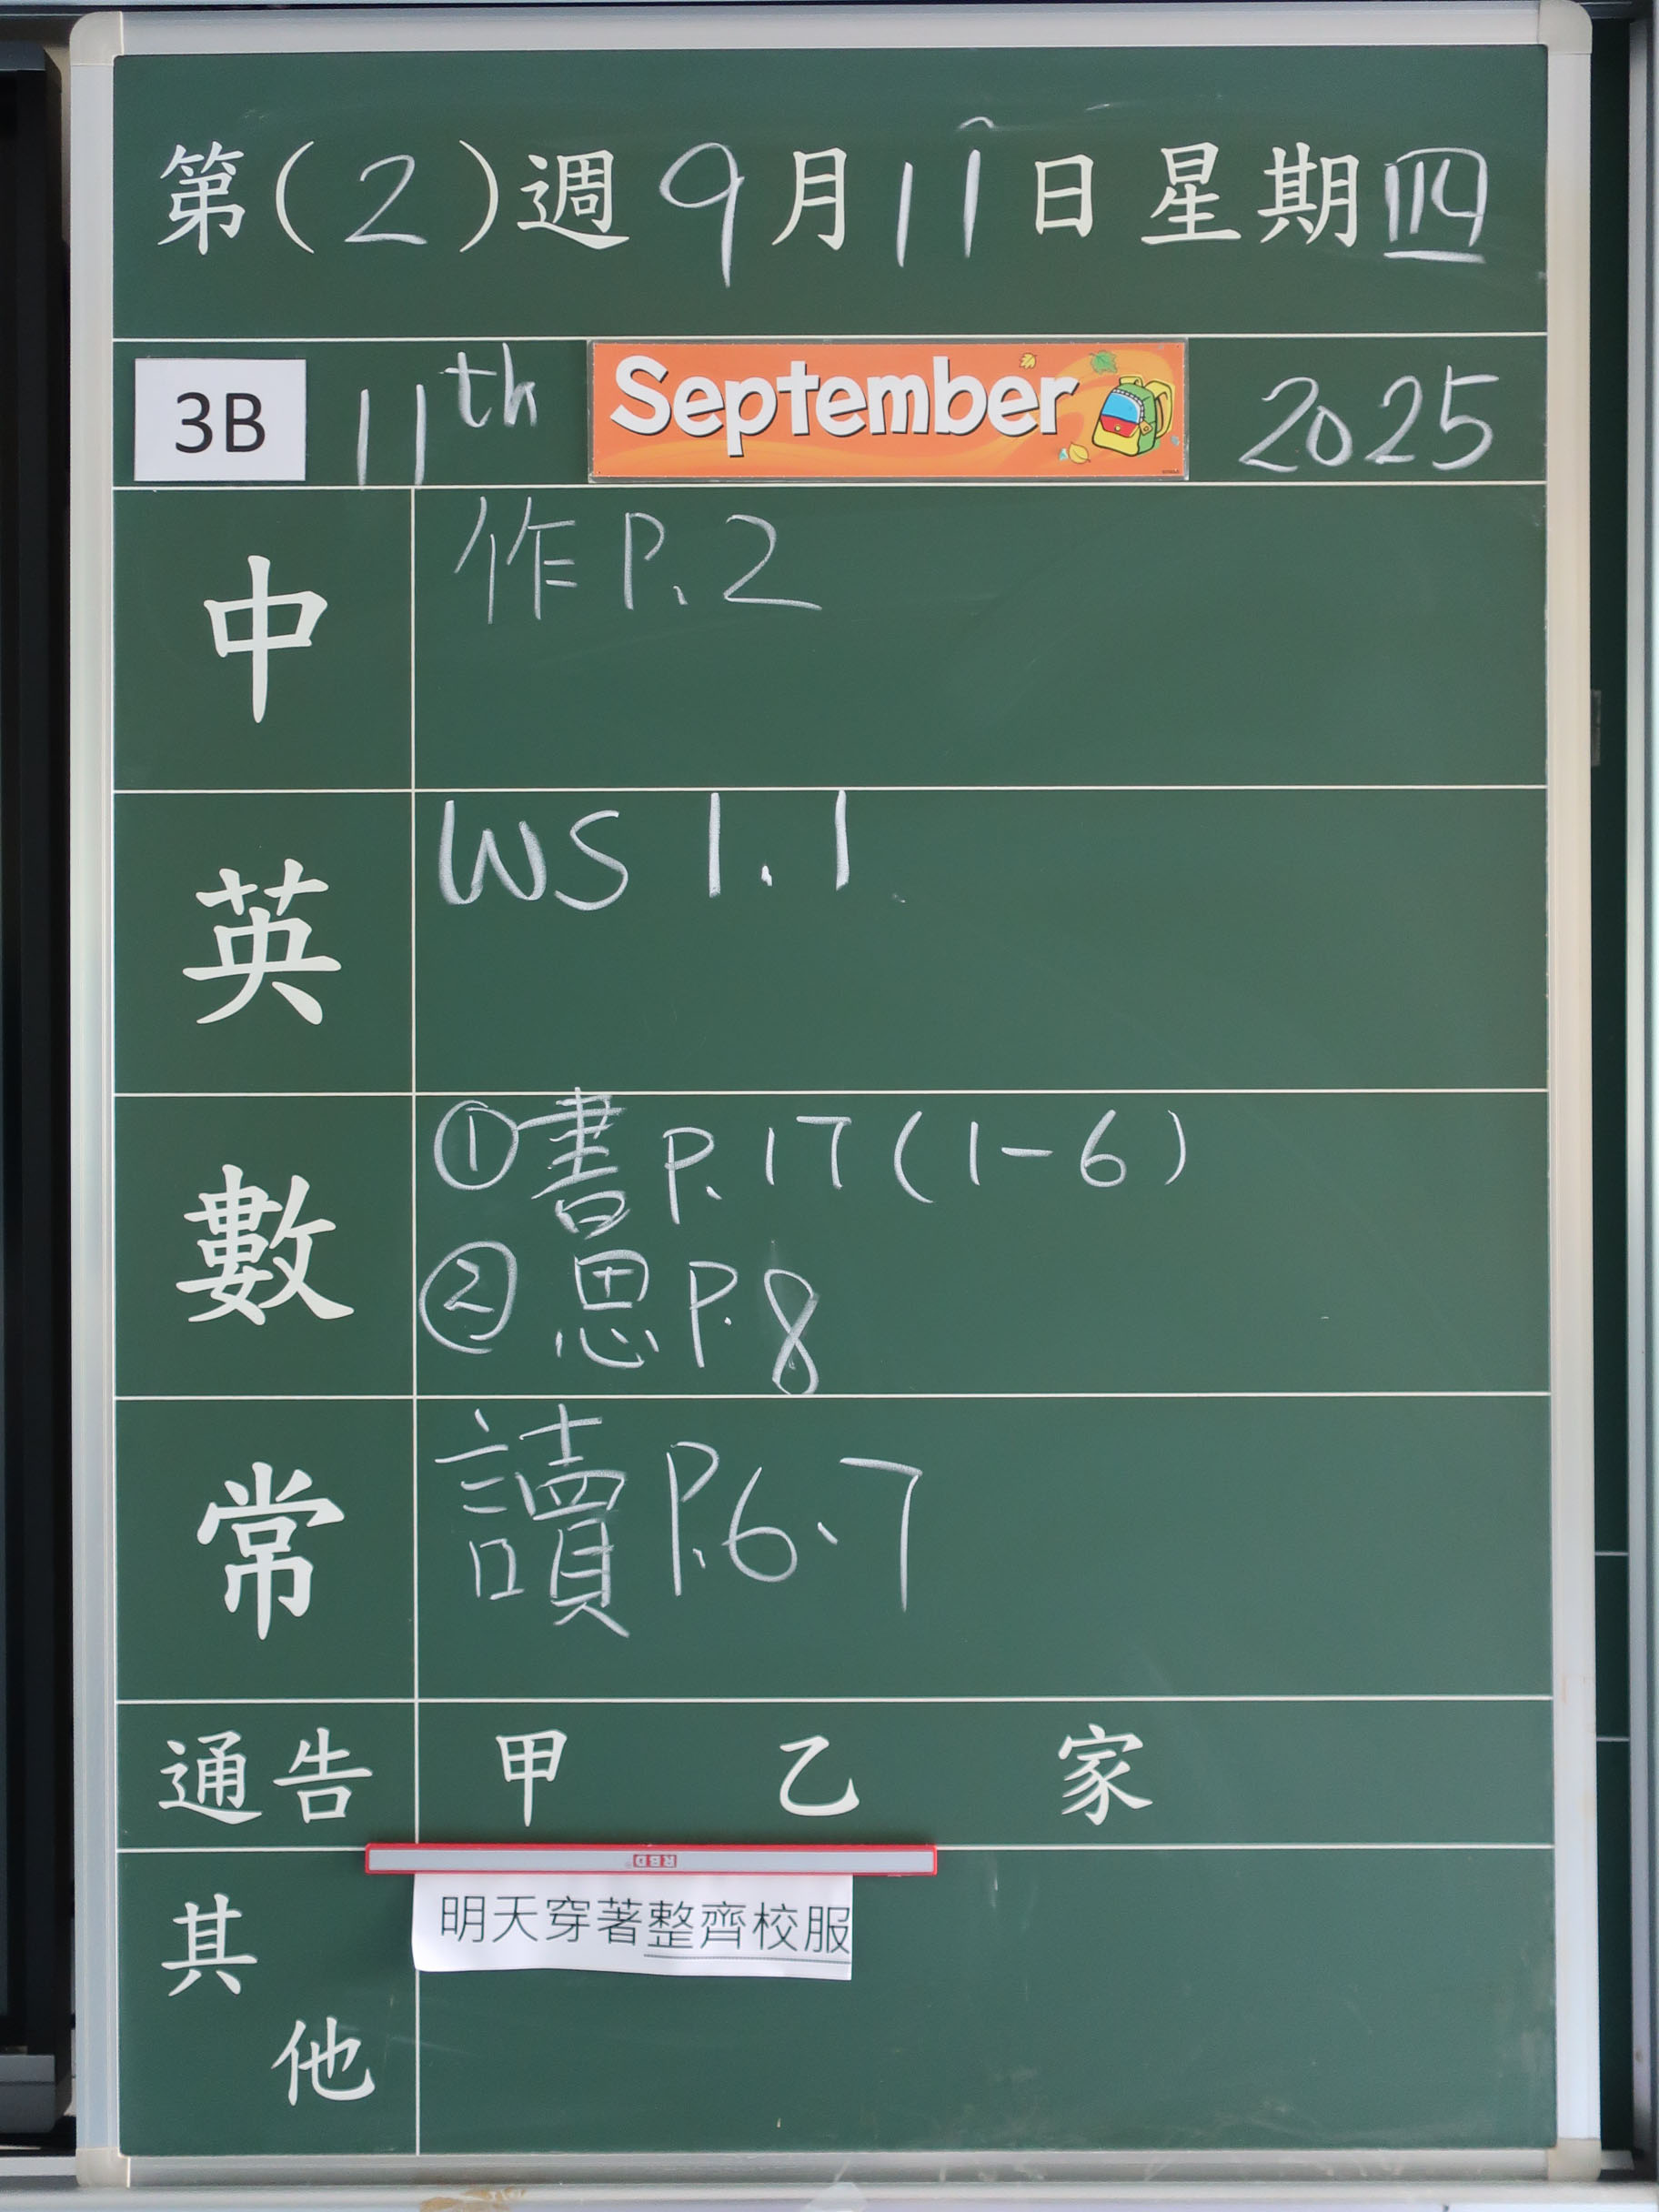 第(2)週9月11日星期四
3B 11th September 2025
中 作P.2
英 WS 1.1
數 ①書P.17(1-6)
②思P.8
常 讀P.6、7
通告 甲 乙 家
RBD
其他 明天穿著整齊校服